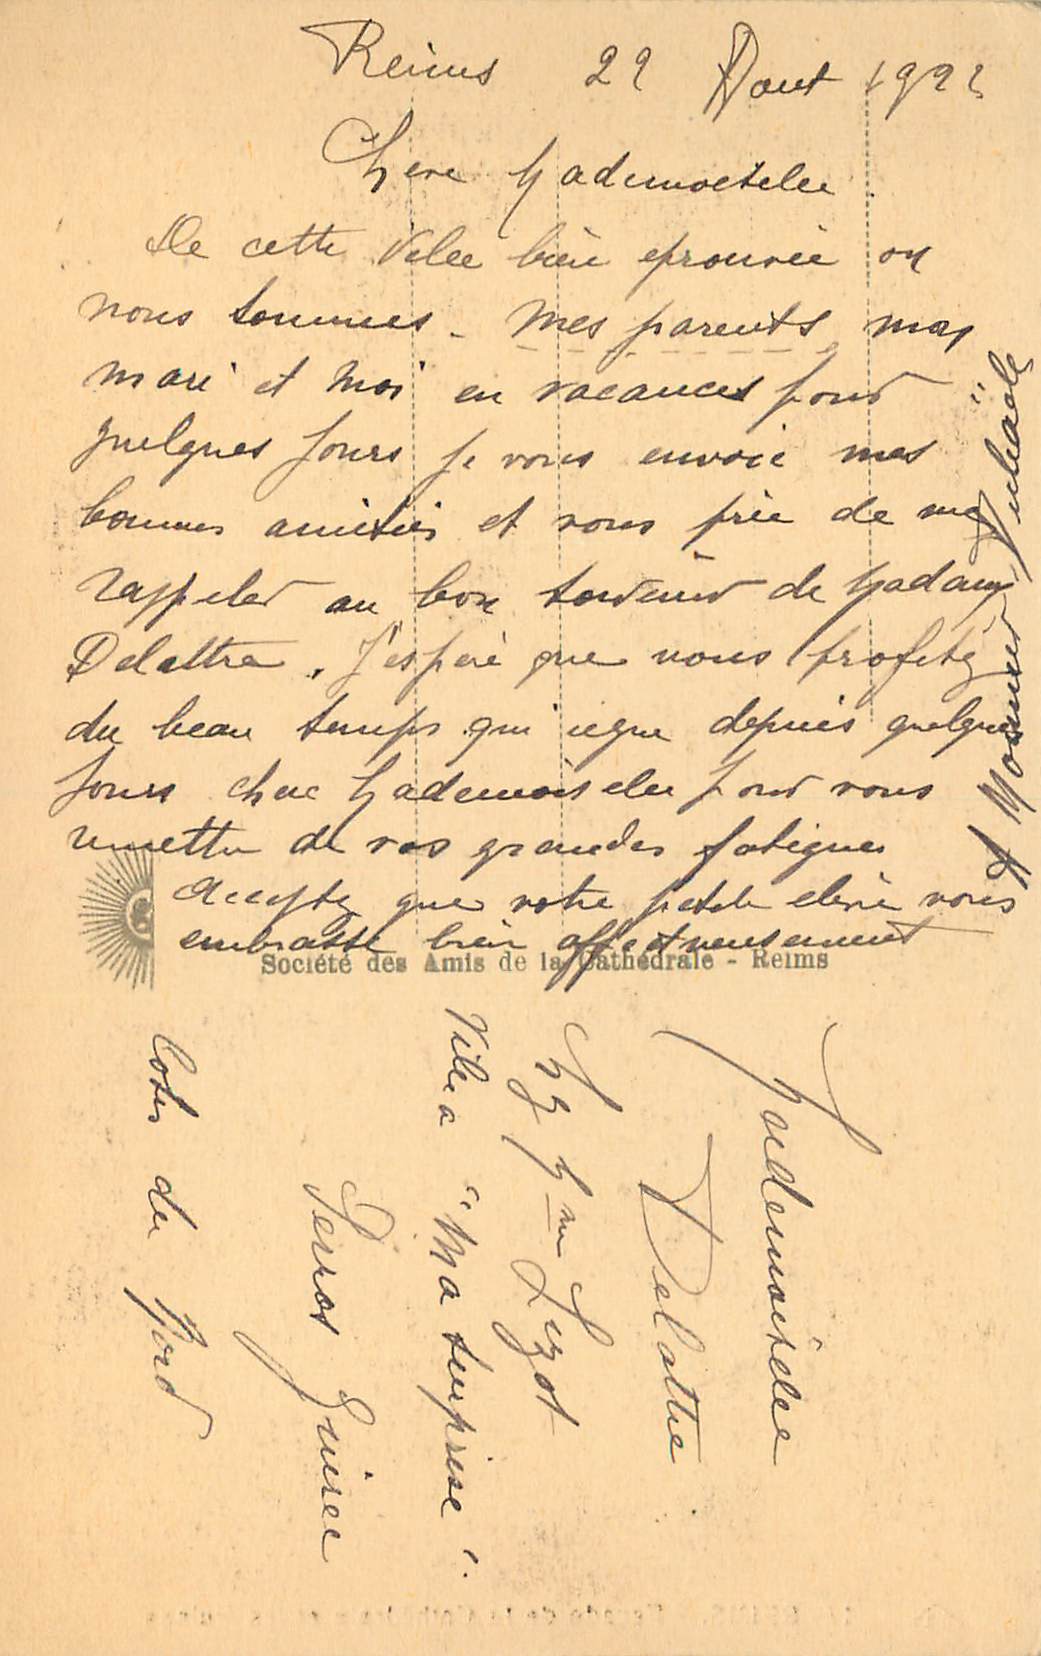 Reims 22 Aout 1922
Chere Mademoiselle
De cette Ville bien eprouvée ou
nous sommes - mes parents mon
mari et moi en vacances pour
quelques jours je vous envoie mes
bonnes amitiés et vous prie de me
rappeler au bon souvenir de Madame
Delattre. J'espere que vous profitez
du beau temps qui regne depuis quelques
jours chere Mademoiselle pour vous
remettre de vos grandes fatigues
Acceptez que votre petite eleve vous
embrasse bien affectueusement
A Monnier
Société des Amis de la Cathédrale - Reims
Mademoiselle
Delattre
Villa "Ma surprise".
Perros Guirec
Cotes du Nord